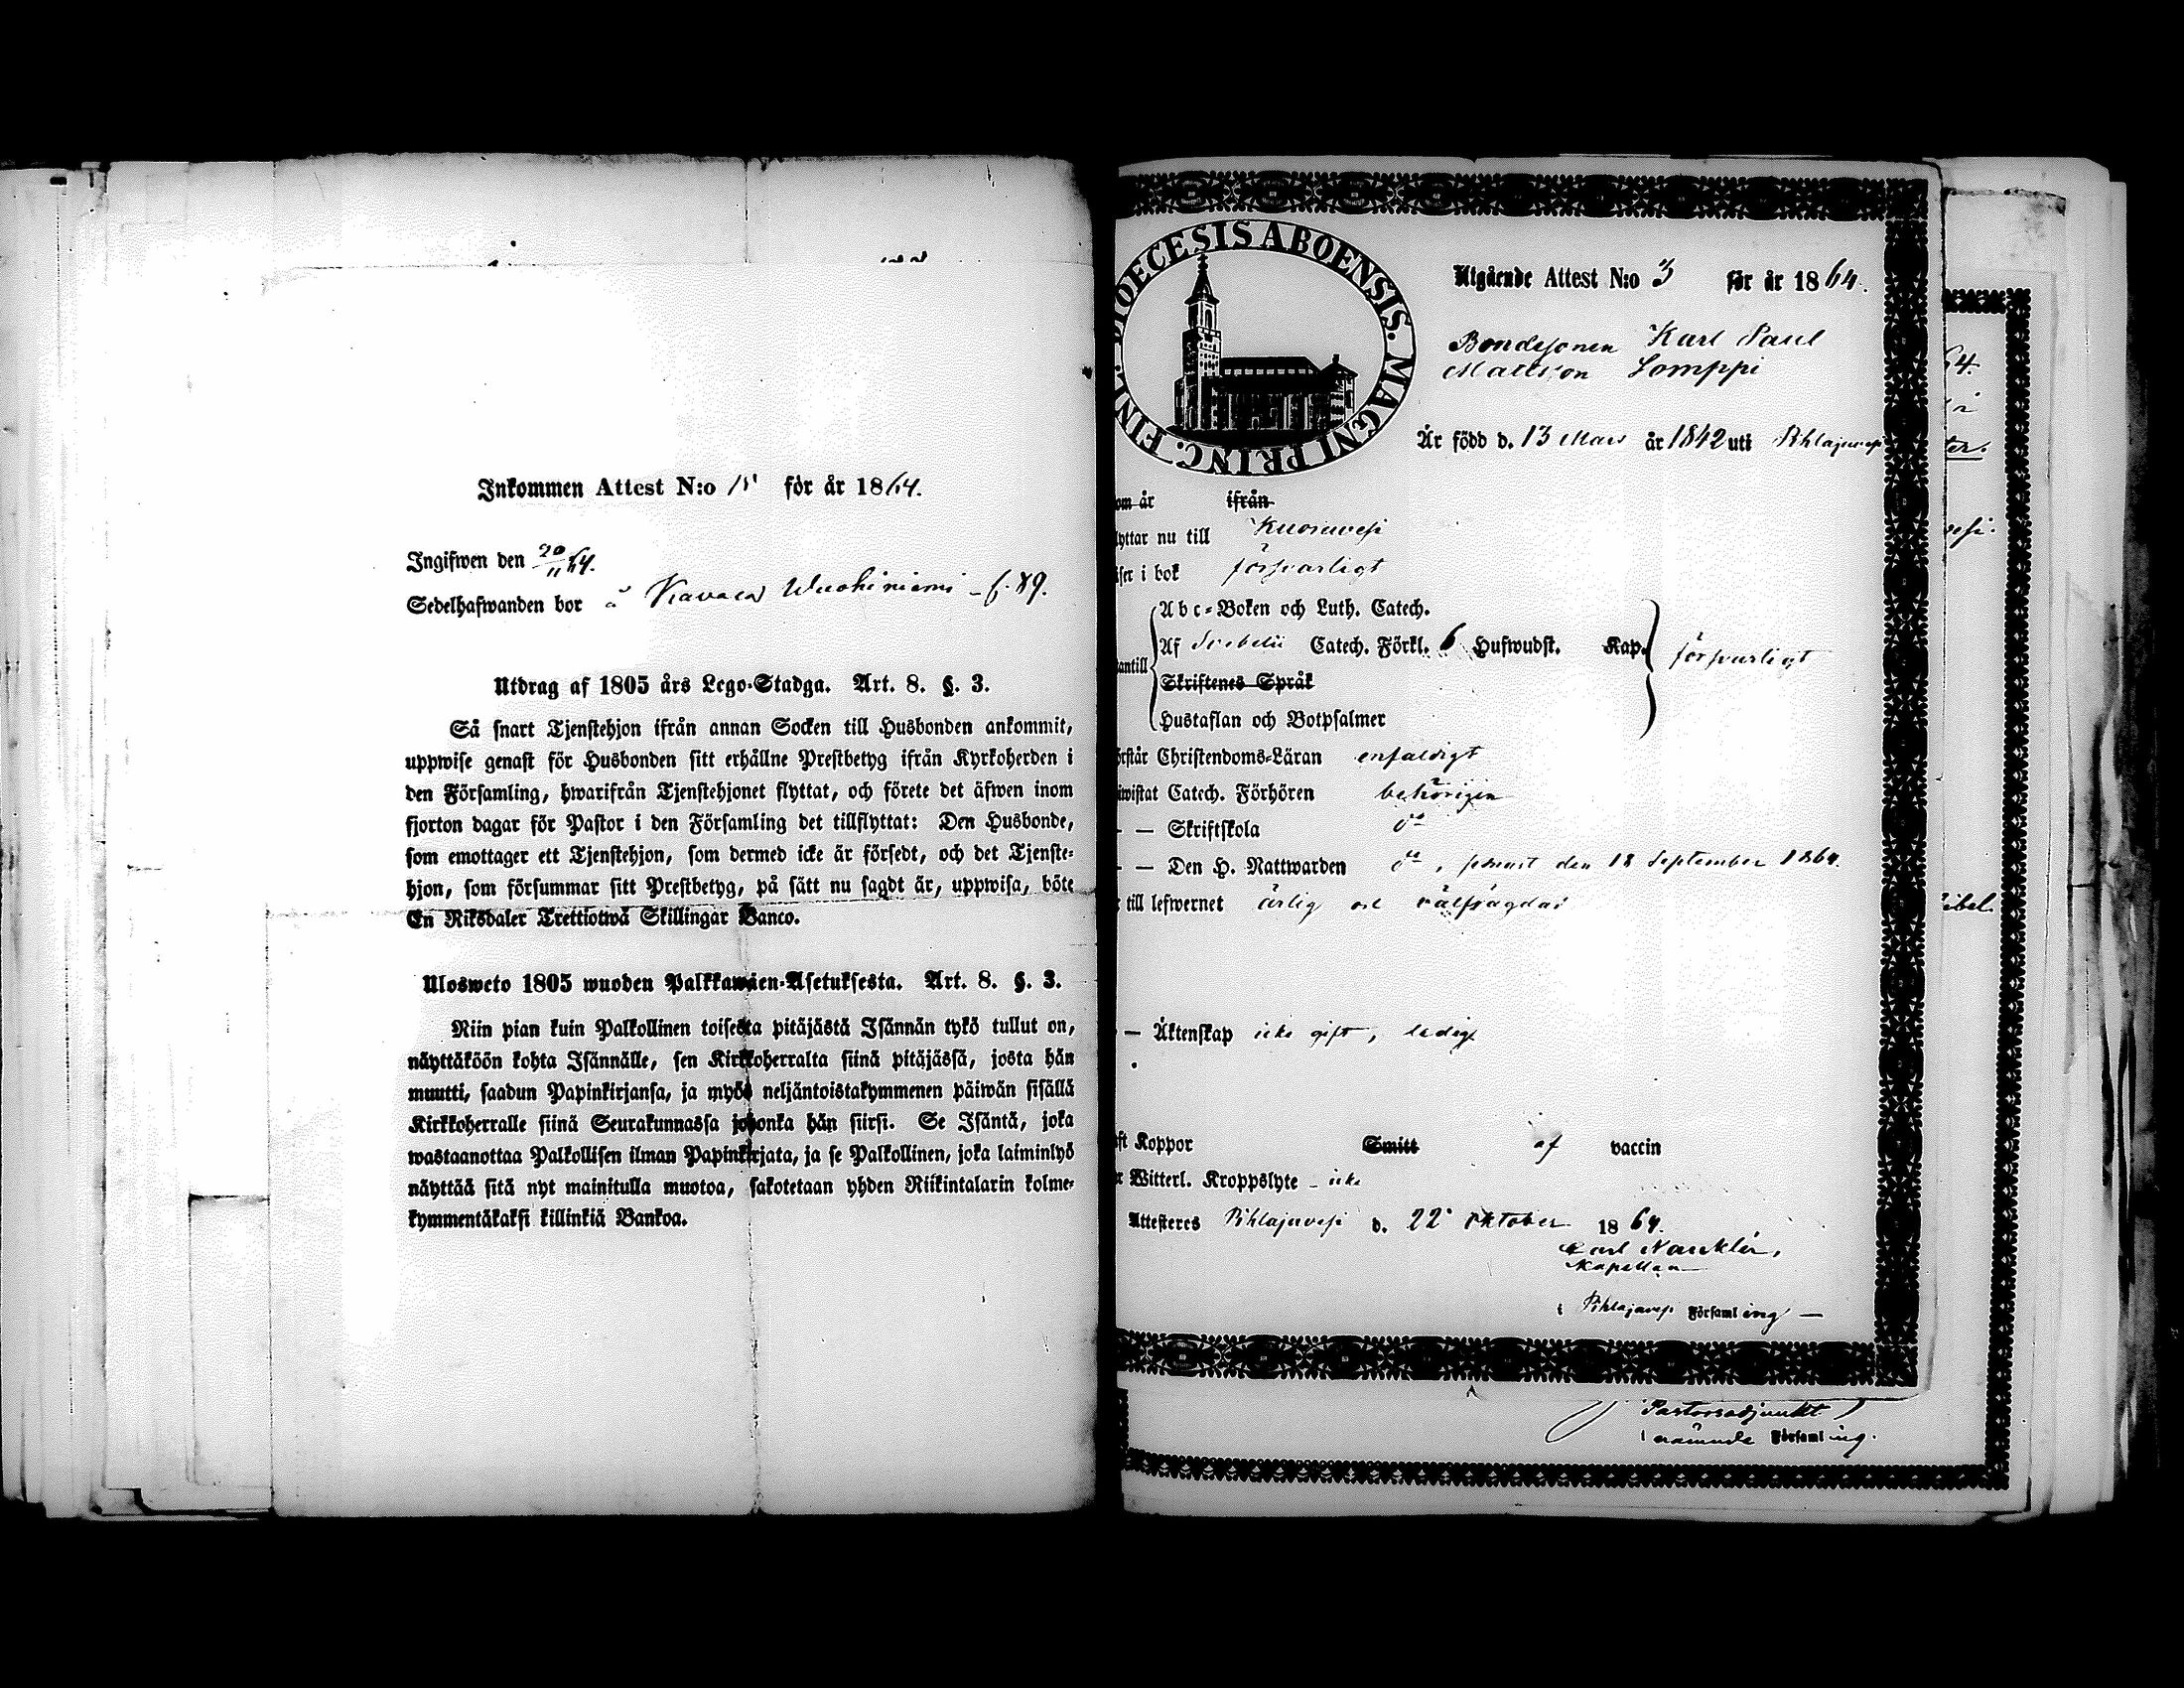 Inkommen Attest N:o för år 1864.
Ingifwen den 20/11 64.
Sedelhafwanden bor å Wuohiniemi - f. 89.
Utdrag af 1805 års Lego-Stadga. Art. 8. §. 3.
Så snart Tjenstehjon ifrån annan Socken till Husbonden ankommit,
uppwise genast för Husbonden sitt erhållne Prestbetyg ifrån Kyrkoherden i
den Församling, hwarifrån Tjenstehjonet flyttat, och förete det äfwen inom
fjorton dagar för Pastor i den Församling det tillflyttat: Den Husbonde,
som emottager ett Tjenstehjon, som dermed icke är försedt, och det Tjenste-
hjon, som försummar sitt Prestbetyg, på sätt nu sagdt är, uppwisa, böte
En Riksdaler Trettiotwå Skillingar Banco.
Ulosweto 1805 wuoden Palkkawäen-Asetuksesta. Art. 8. §. 3.
Niin pian kuin Palkollinen toisesta pitäjästä Isännän tykö tullut on,
näyttäköön kohta Isännälle, sen Kirkkoherralta siinä pitäjässä, josta hän
muutti, saadun Papinkirjansa, ja myös neljäntoistakymmenen päiwän sisällä
Kirkkoherralle siinä Seurakunnassa johonka hän siirsi. Se Isäntä, joka
wastaanottaa Palkollisen ilman Papinkirjata, ja se Palkollinen, joka laiminlyö
näyttää sitä nyt mainitulla muotoa, sakotetaan yhden Riikintalarin kolme-
kymmentäkaksi killinkiä Bankoa.
DIOECESIS ABOENSIS. MAGNI PRINC. FINL.
Utgående Attest N:o 3 för år 1864.
Bondesonen Karl Paul
Mattsson Lomppi
Är född d. 13 Mars år 1842 uti Pihlajavesi
om år ifrån
lyttar nu till Kuorevesi
äser i bok försvarligt
Abc-Boken och Luth. Catech.
antill Af Svebelii Catech. Förkl. 6 Hufwudst. Kap. försvarligt
Skriftenes Språk
Hustaflan och Botpsalmer
örstår Christendoms-Läran enfaldigt
iwistat Catech. Förhören behörigen
— — Skriftskola do
— — Den H. Nattwarden do, senast den 18 September 1864.
till lefwernet ärlig och välfrägdad
— Äktenskap icke gift, ledig
ft Koppor Smitt af vaccin
r Witterl. Kroppslyte - icke
Attesteres Pihlajavesi d. 22 oktober 1864.
Carl
Kapellan
i Pihlajavesi Församling —
Pastorsadjunkt
i nämnde Församling.
64.
vesi.